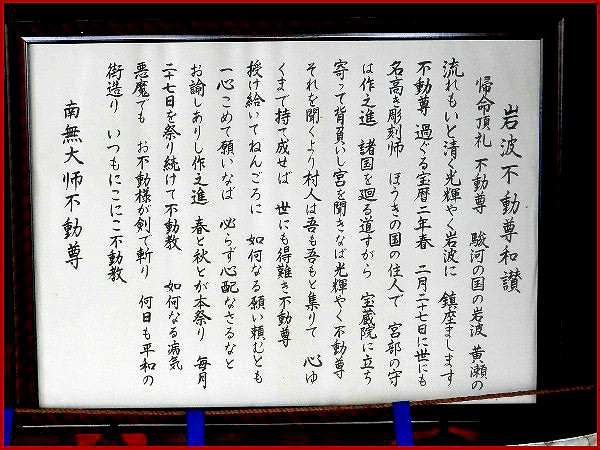 岩波不動尊和讃
帰命頂礼 不動尊 駿河の国の岩波 黄瀬の
流れもいと清く光輝やく岩波に 鎮座まします
不動尊 過ぐる宝暦二年春 二月二十七日に世にも
名高き彫刻師 ほうきの国の住人で 宮部の守
は作之進 諸国を廻る道すがら 宝蔵院に立ち
寄って背負いし宮を聞きなば光輝やく不動尊
それを聞くより村人は吾も吾もと集りて 心ゆ
くまで持て成せば 世にも得難き不動尊
授け給いてねんごろに 如何なる願い頼むとも
一心こめて願いなば 必らず心配なさるなと
お諭しありし作之進 春と秋とが本祭り 毎月
二十七日を祭り続けて不動教 如何なる病気
悪魔でも お不動様が剣で斬り 何日も平和の
街造り いつもにこにこ不動教
南無大师不動尊